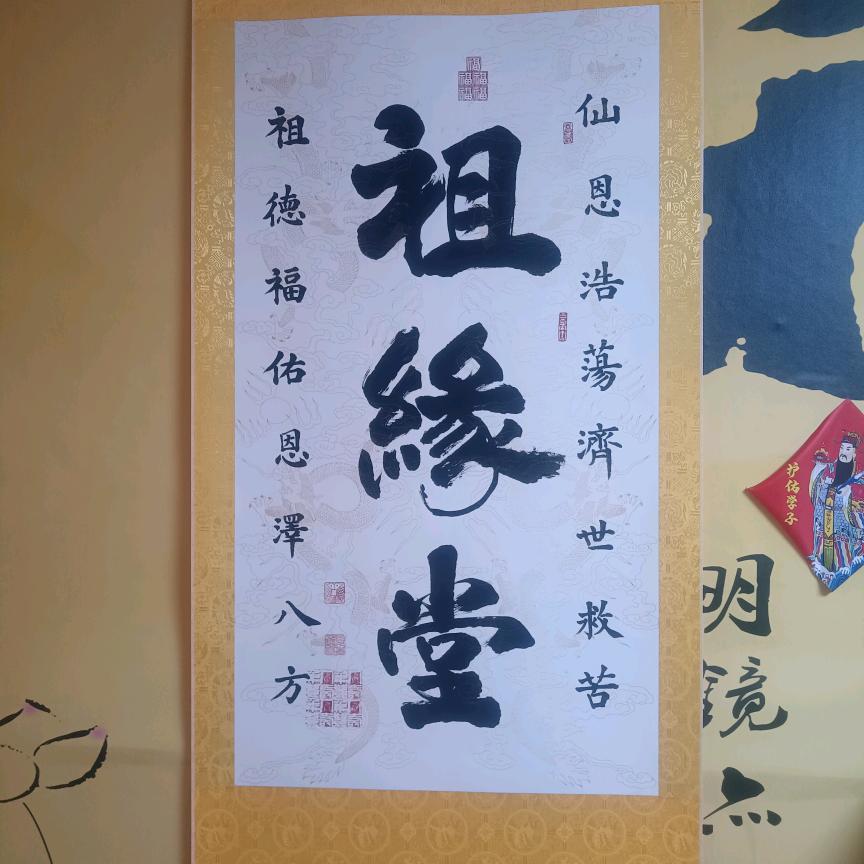 仙恩浩蕩濟世救苦
祖緣堂
祖德福佑恩澤八方
护佑学子
明鏡点